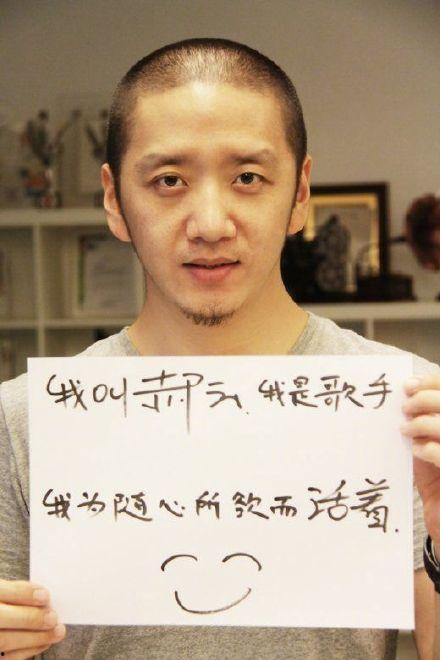 我叫郝云，我是歌手
我为随心所欲而活着.